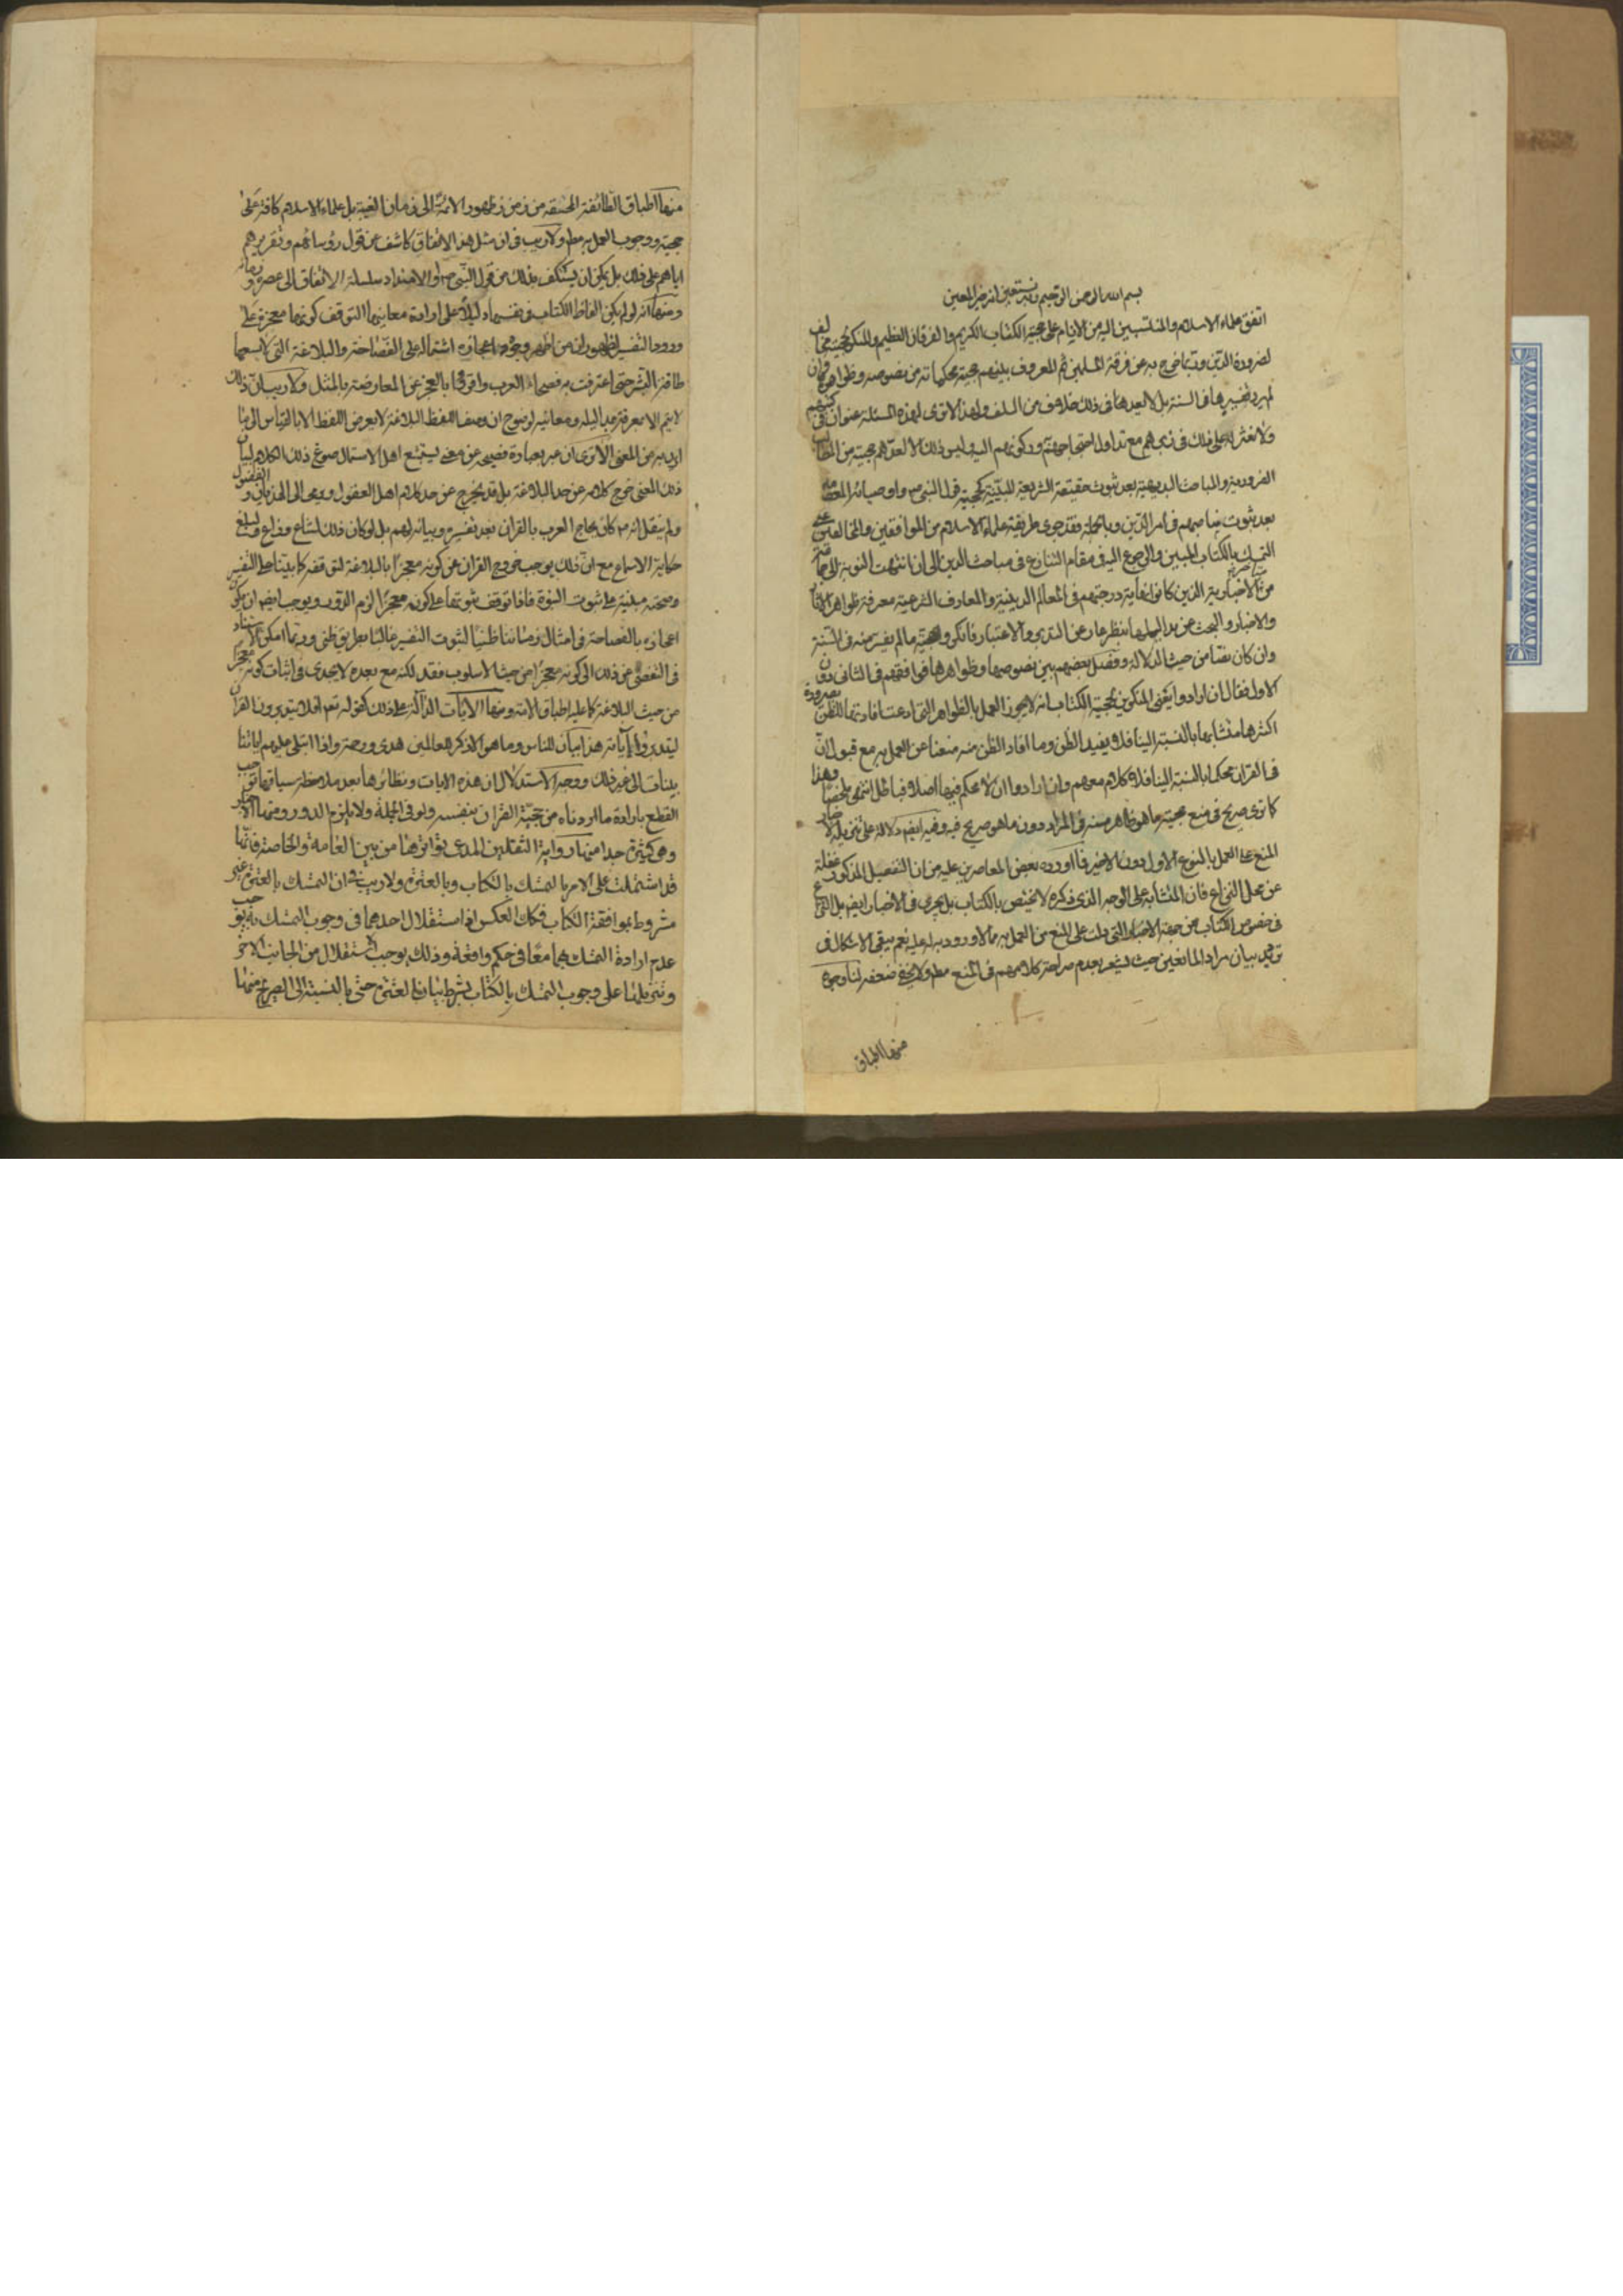 بسم الله الرحمن الرحيم وبه نستعين انه خير المعين
اتفق علماء الاسلام والمنتسبين اليه من الانام على حجية الكتاب الكريم والفرقان العظيم والمنكر لحجيته مخالف
لضرورة الدين وربما خرج به عن فرقة المسلمين ثم المعروف بينهم حجية محكماته من نصوصه وظواهره وان
لم يرد تفسيرها في السنة بل لا يعد هنا في ذلك خلاف من السلف ولهذا لا ترى لهذه المسئلة عنوان في كتبهم
ولا نعثر على ذلك في زبرهم مع تداول احتجاجهم به وركونهم اليه وليس ذلك الا لعدهم حجيته من المطالب
الضرورية والمباحث البديهية بعد ثبوت حقيقة الشريعة المبينة كحجية قول النبي ص واوصيائه المعصومين
بعد ثبوت مناصبهم في امر الدين وبالجملة فقد جرى طريقة علماء الاسلام من الموافقين والمخالفين على
التمسك بالكتاب المبين والرجوع اليه في مقام التنازع في مباحث الدين الى ان انتهت النوبة الى جماعة
من متاخري الاخبارية الذين كان غاية درجتهم في المعالم الدينية والمعارف الشرعية معرفة ظواهر الاثار
والاخبار والبحث عن مداليلها بنظر عار عن التدبر والاعتبار فانكروا حجية ما لم يفسر منه في السنة
وان كان نصا من حيث الدلالة وفصل بعضهم بين نصوصها وظواهرها فوافقهم في الثاني دون
الاول فقال ان ارادوا يعني المنكرين لحجية الكتاب انه لا يجوز العمل بالظواهر التي ادعت افادتها للظن لصيرورة
اكثرها متشابها بالنسبة الينا فلا يفيد الظن وما افاد الظن منه منعنا عن العمل به مع قبول ان
في القران محكما بالنسبة الينا فلا كلام معهم وان ارادوا ان لا محكم فيها اصلا فباطل انتهى ملخصا وهذا
كما ترى صريح في منع حجية ما هو ظاهر منه في المراد دون ما هو صريح فيه وفيه ايضا دلالة على تنزيله الاخبار
المنع على العمل بالنوع الاول دون الاخير فما اورده بعض المعاصرين عليه من ان التفصيل المذكور غفلة
عن محل النزاع فان المتشابه على الوجه الذي ذكره لا يختص بالكتاب بل يجري في الاخبار ايضا بل النزاع
في خصوص الكتاب من جهة الاخبار التي دلت على المنع من العمل به مما لا ورود به له عليه نعم يبقى الاشكال في
بيان مراد المانعين حيث يشعر بعدم صراحة كلامهم في المنع مط ولا يخفى ضعفه لنا وجوه
منها اطباق
منها اطباق الطائفة المحقة من زمن ظهور الائمة الى زمان الغيبة بل علماء الاسلام كافة على
حجيته ووجوب العمل به مط ولا ريب في ان مثل هذا الاتفاق كاشف عن قول رؤسائهم وتقريرهم
اياهم على ذلك بل يمكن ان يستكشف بذلك عن قول النبي ص لامتداد سلسلة الاتفاق الى عصره وزمانه
ومنها انه لو لم يكن الفاظ الكتاب في نفسها دليلا على ارادة معانيها لتوقف كونها معجزة على
ورود التفسير لظهور ان من اظهر وجوه اعجازه اشتماله على الفصاحة والبلاغة التي لا يسعها
طاقة البشر حتى اعترفت به فصحاء العرب واقروا بالعجز عن المعارضة بالمثل ولا ريب ان ذلك
لا يتم الا بمعرفة مداليله ومعانيه لوضوح ان وصف اللفظ البلاغة لا يعرض اللفظ الا بالقياس الى ما
اريد به من المعنى الا ترى ان من عبر بعبارة فصيحة عن معنى يستبشع اهل الاستعمال صوغ ذلك الكلام لبيان
ذلك المعنى خرج كلامه عن حد البلاغة بل قد يخرج عن حد كلام اهل العقول ويرمى الى الهذيان والفضول
ولم ينقل انه ص كان يحاج العرب بالقران بعد تفسيره وبيانه لهم بل لو كان ذلك لشاع وذاع ولبلغ
حكايته الاسماع مع ان ذلك يوجب خروج القران عن كونه معجزا بالبلاغة لتوقفه كما بيناه على التفسير
وصحته مبنية على ثبوت النبوة فاذا توقف ثبوتها على كونه معجزا لزم الدور ويوجب ايضا ان يكون
اعجازه بالفصاحة في امثال زماننا ظنيا لثبوت التفسير غالبا بطريق ظني وربما امكن الاستناد
في التفصي عن ذلك الى كونه معجزا من حيث الاسلوب فقد لكنه مع بعده لا يجدي في اثبات كونه معجزا
من حيث البلاغة كما عليه اطباق الامة ومنها الايات الدالة على ذلك كقوله تعم افلا يتدبرون القران
ليتدبروا اياته هذا بيان للناس وما هو الا ذكر للعالمين هدى ورحمة واذا تتلى عليهم اياتنا
بينات الى غير ذلك ووجه الاستدلال ان هذه الايات ونظائرها بعد ملاحظة سياقها توجب
القطع بارادة ما اردناه من حجية القران بنفسه ولو في الجملة ولا يلزم الدور ومنها الاخبار
وهي كثيرة جدا منها رواية الثقلين المدعى تواترها من بين العامة والخاصة فانها
قد اشتملت على الامر بالتمسك بالكتاب وبالعترة ولا ريب في ان التمسك بالعترة غير
مشروط بموافقة الكتاب فكذا العكس اذ استقلال احدهما في وجوب التمسك به يوجب
عدم ارادة التمسك بهما معا في حكم واقعة وذلك يوجب استقلال من الجانب الاخر
وتنزيلها على وجوب التمسك بالكتاب بشرط بيان العترة حتى بالنسبة الى الصريح منها